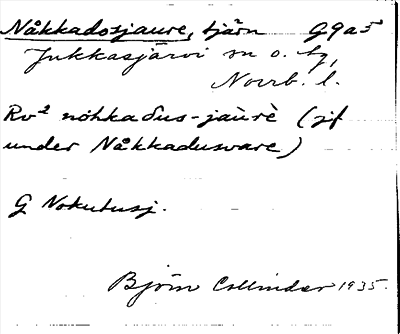 Nåkkadosjaure, tjärn G9a5
Jukkasjärvi sn o. tg,
Norrb. l.
Rv² nòhkaδus-jaùrè (jf
under Nåkkadusvare)
G Nokutusj.
Björn Collinder 1935.